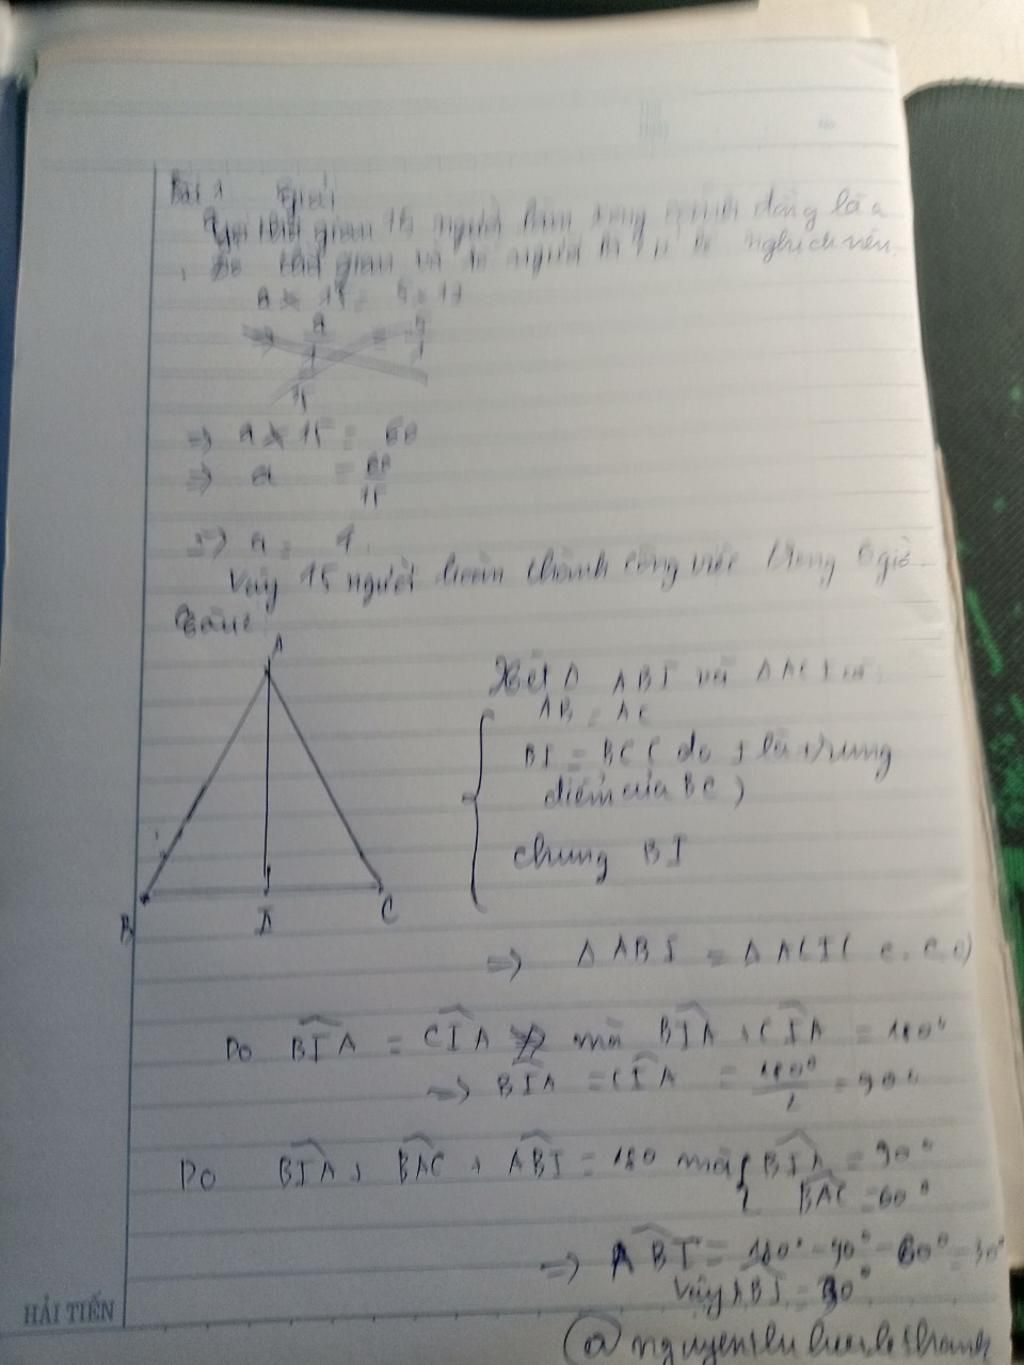 Bài 1 Giải
Gọi thời gian 15 người làm xong cánh đồng là a
Do thời gian và số người là nghịch nên
a × 15 =
a
15
=> a × 15 = 60
=> a = 60
15
=> a = 4
Vậy 15 người hoàn thành công việc trong giờ
A
Xét Δ ABI và Δ ACI có
AB = AC
BI = BC ( do I là trung
điểm của BC )
chung BI
B
I
C
=> Δ ABI = Δ ACI ( c.c.c)
Do BIA = CIA mà BIA + CIA = 180°
=> BIA = CIA = 180° = 90°
2
Do BIA + BAC + ABI = 180 mà BIA = 90°
BAC = 60°
=> ABI = 180° - 90° - 60° = 30°
Vậy ABI = 30°
HẢI TIẾN